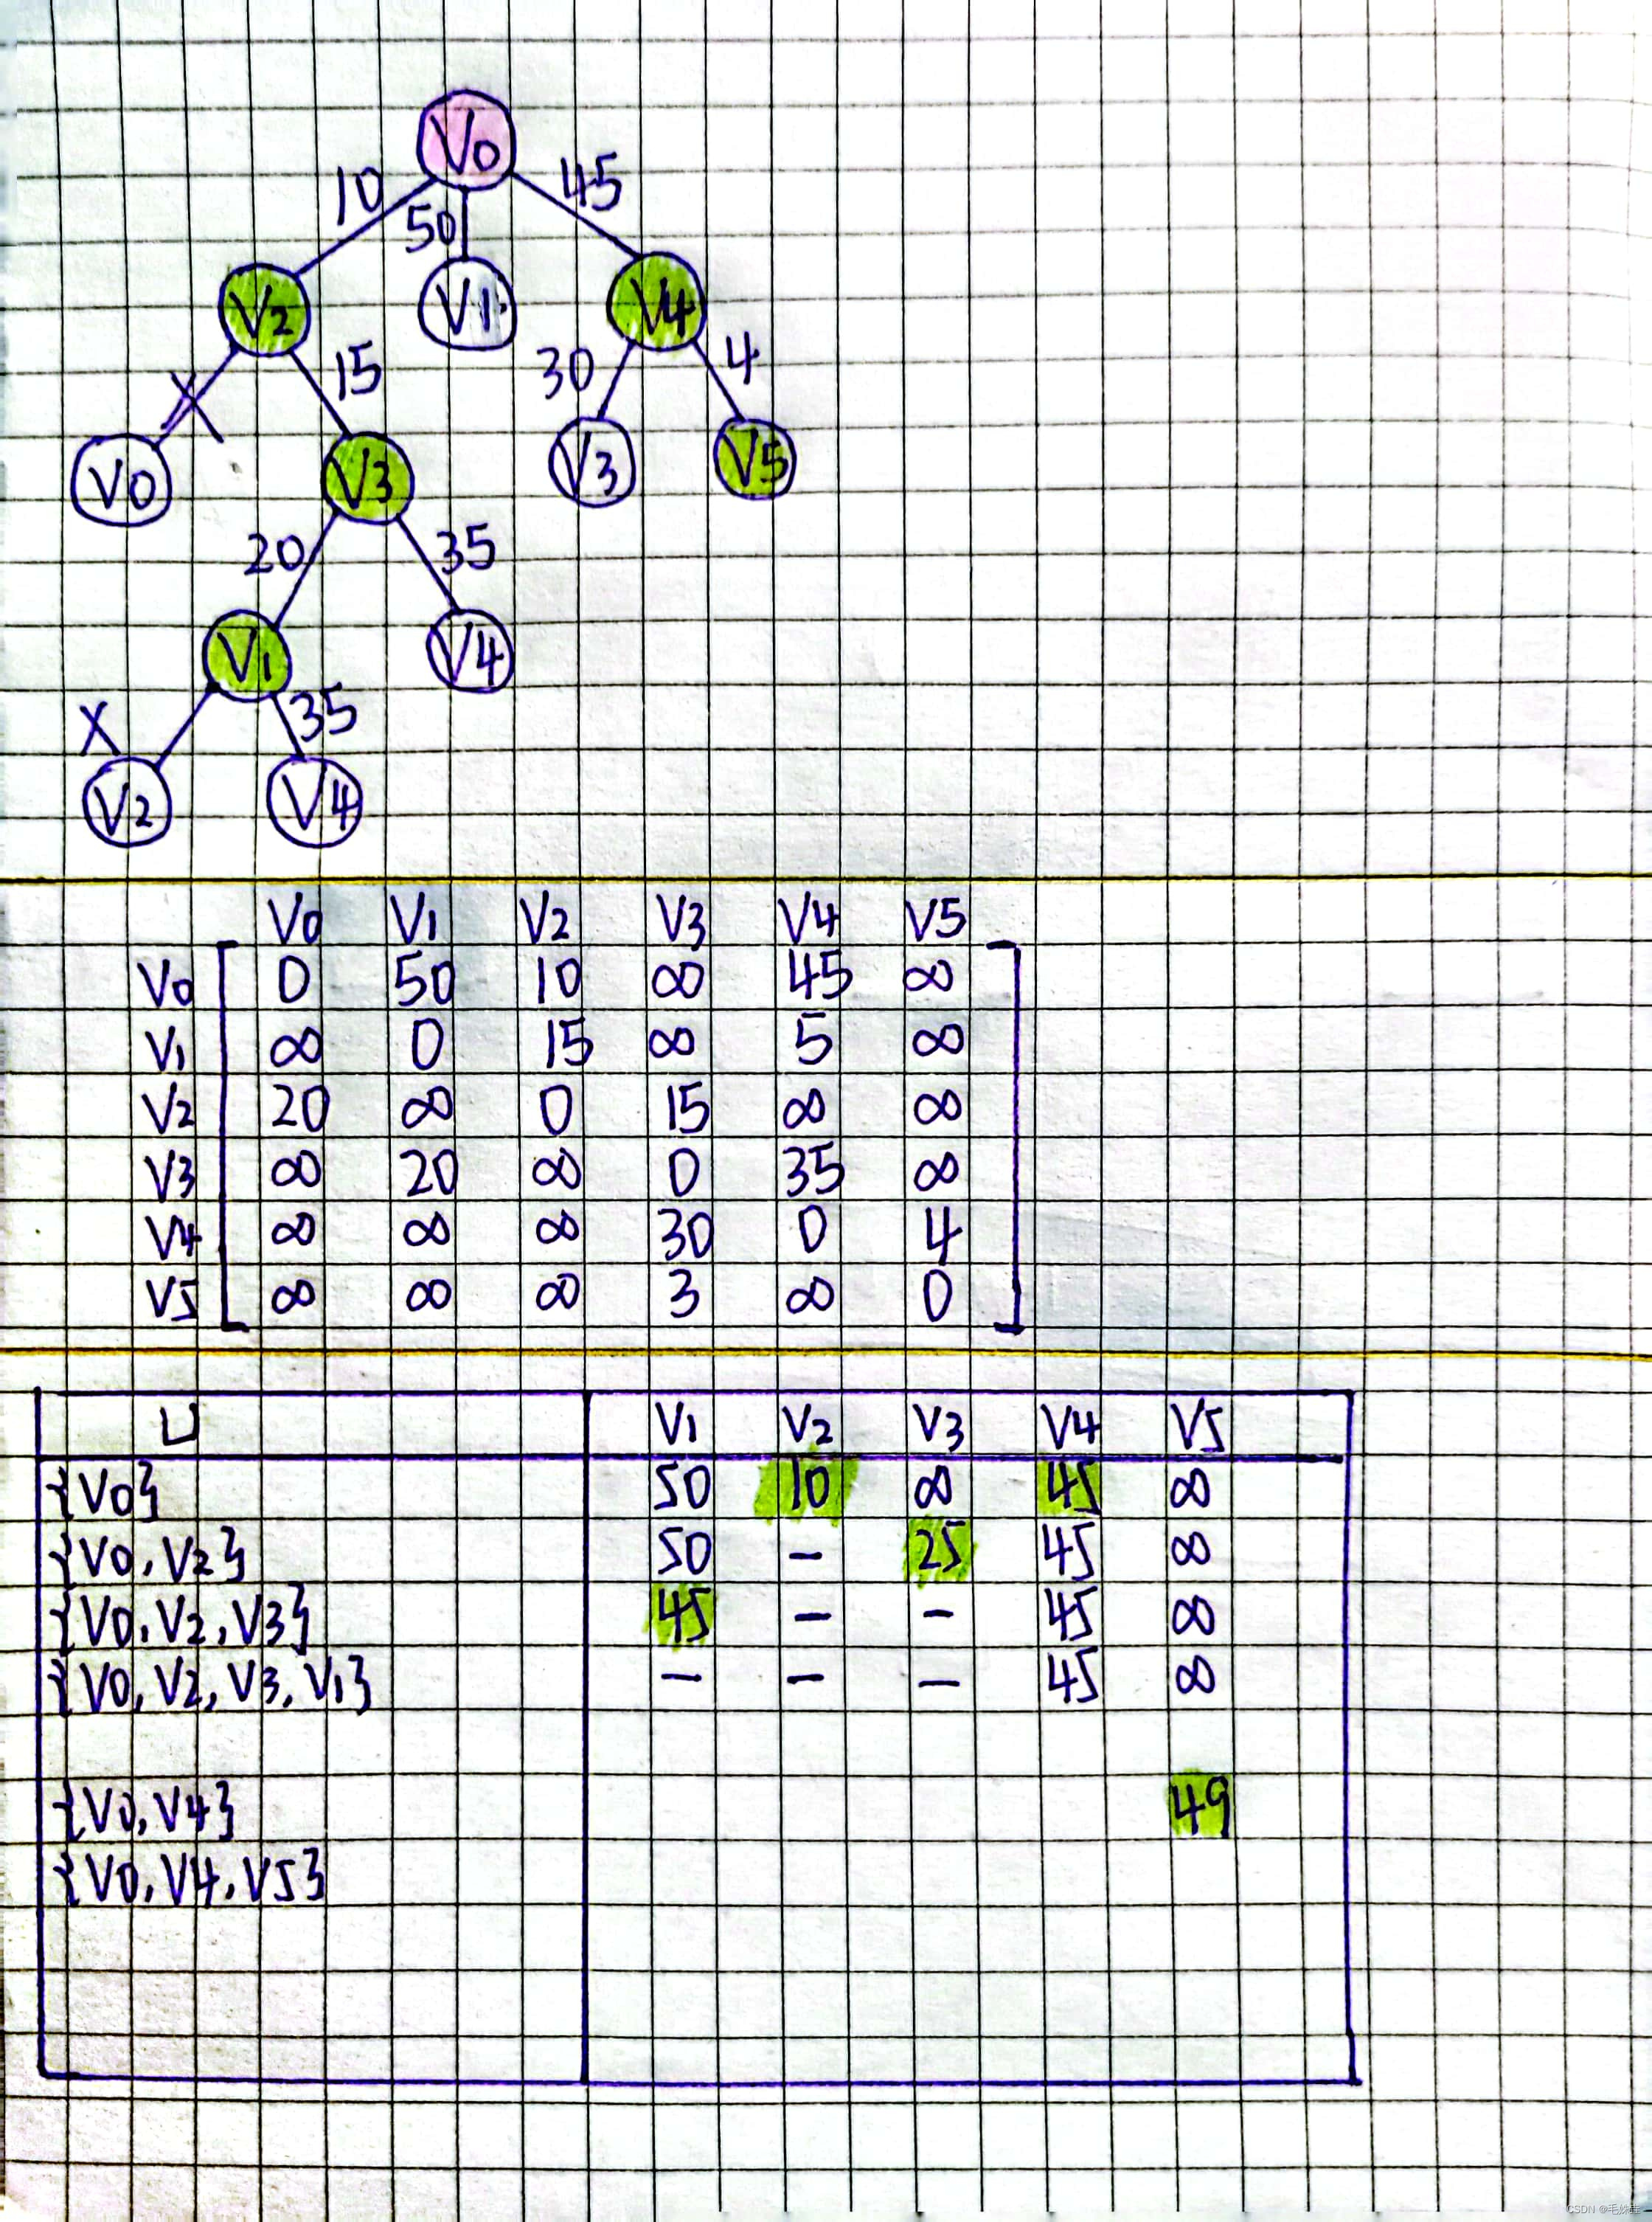 V0
10 50 45
V2 V1 V4
X 15 30 4
V0 V3 V3 V5
20 35
V1 V4
X 35
V2 V4
V0 V1 V2 V3 V4 V5
V0 0 50 10 ∞ 45 ∞
V1 ∞ 0 15 ∞ 5 ∞
V2 20 ∞ 0 15 ∞ ∞
V3 ∞ 20 ∞ 0 35 ∞
V4 ∞ ∞ ∞ 30 0 4
V5 ∞ ∞ ∞ 3 ∞ 0
U V1 V2 V3 V4 V5
{V0} 50 10 ∞ 45 ∞
{V0,V2} 50 - 25 45 ∞
{V0,V2,V3} 45 - - 45 ∞
{V0,V2,V3,V1} - - - 45 ∞
{V0,V4} 49
{V0,V4,V5}
CSDN